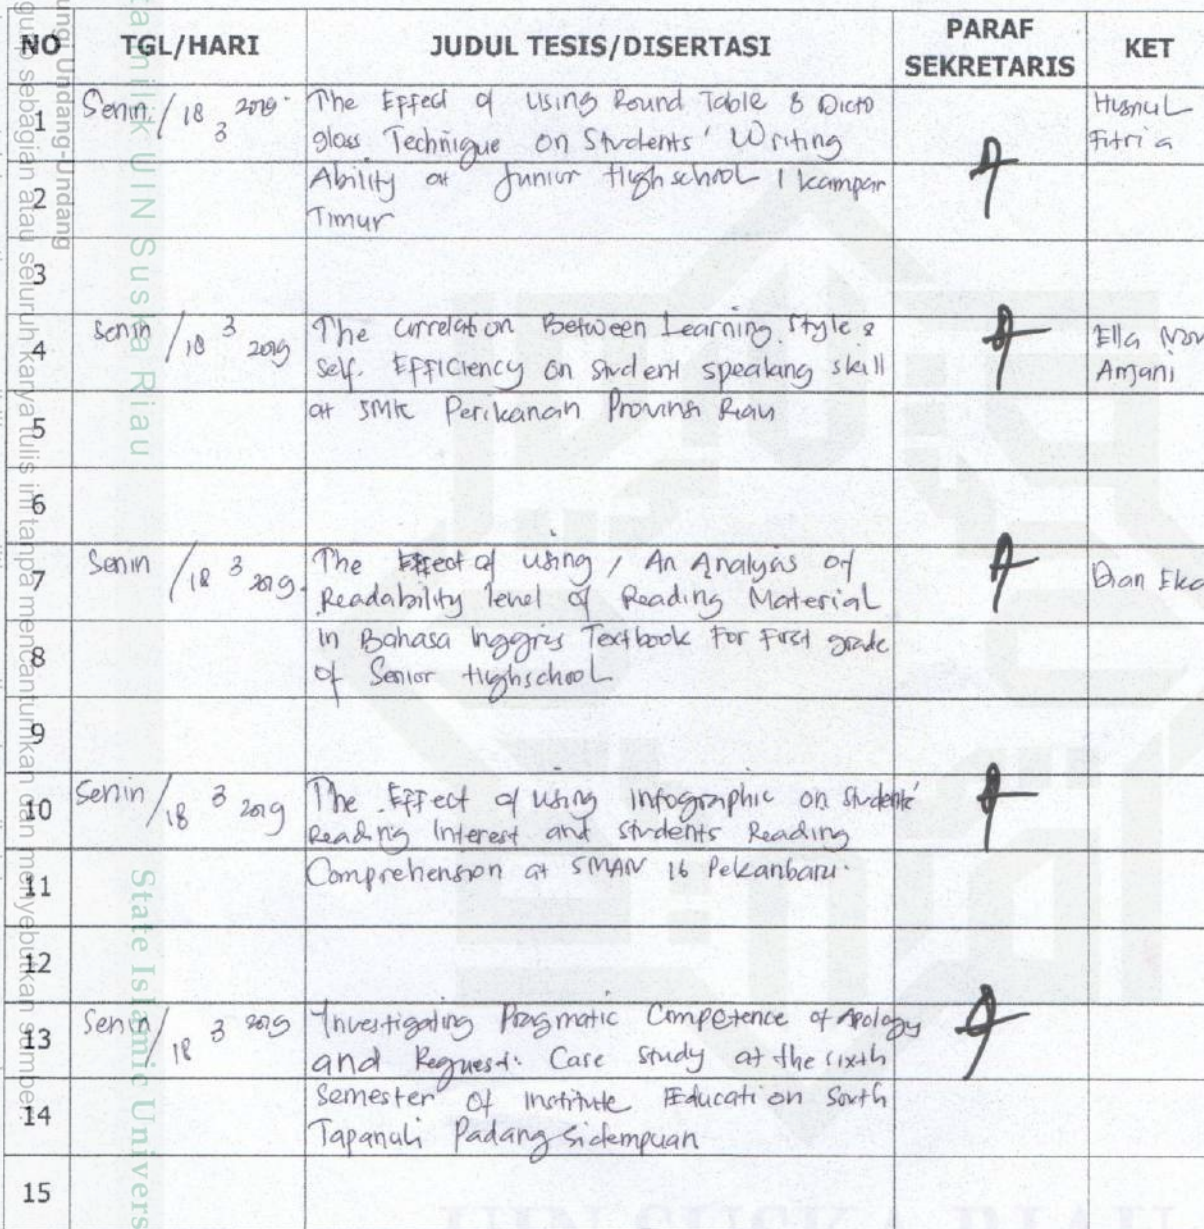 NO TGL/HARI JUDUL TESIS/DISERTASI PARAF SEKRETARIS KET
1 Senin / 18 3 2019 The Effect of Using Round Table & Dicto Husnul
gloss Technique on Students' Writing Fitria
2 Ability at Junior Highschool 1 Kampar
Timur
3
4 Senin / 18 3 2019 The Correlation Between Learning Style & Ella Nov
Self. Efficiency on student speaking skill Anjani
5 at SMK Perikanan Provinsi Riau
6
7 Senin / 18 3 2019. The Effect of using / An Analysis of Dian Eka
Readability level of Reading Material
8 in Bahasa Inggris Textbook For First grade
of Senior Highschool
9
10 Senin / 18 3 2019 The Effect of using Infographic on Students'
Reading Interest and students Reading
11 Comprehension at SMAN 16 Pekanbaru.
12
13 Senin / 18 3 2019 Investigating Pragmatic Competence of Apology
and Request: Case Study at the sixth
14 Semester of Institute Education South
Tapanuli Padangsidempuan
15
Undang-Undang
sebagian atau seluruh karya tulis ini tanpa mencantumkan dan menyebutkan sumber
milik UIN Suska Riau
State Islamic Univers
UIN SUSKA RIAU